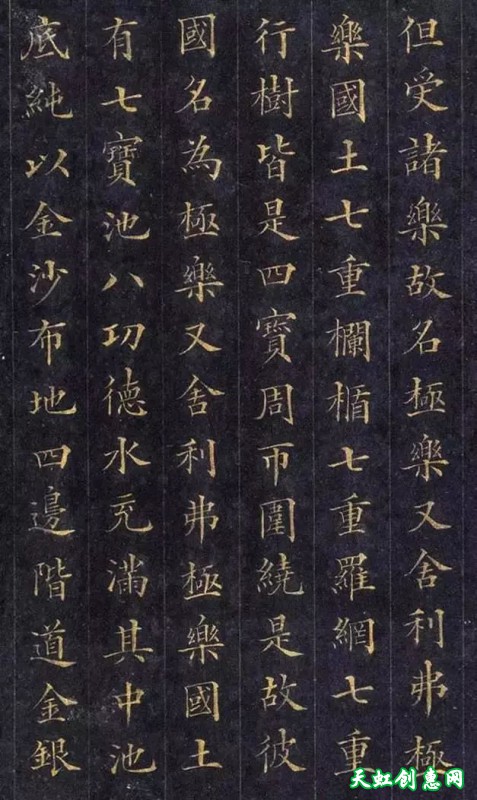 但受諸樂故名極樂又舍利弗極
樂國土七重欄楯七重羅網七重
行樹皆是四寶周帀圍繞是故彼
國名為極樂又舍利弗極樂國土
有七寶池八功德水充滿其中池
底純以金沙布地四邊階道金銀
天虹创惠网